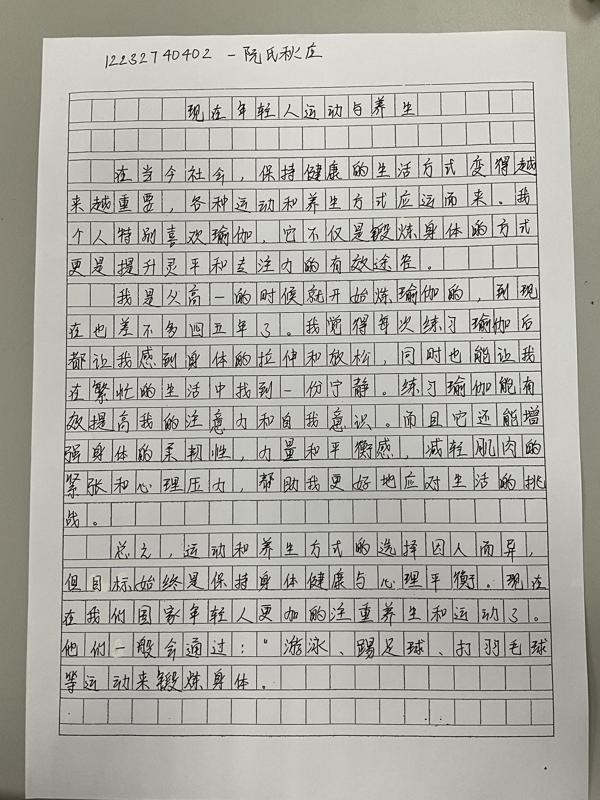 12232740402 - 阮氏秋庄
现在年轻人运动与养生
在当今社会，保持健康的生活方式变得越
来越重要，各种运动和养生方式应运而来。我
个人特别喜欢瑜伽，它不仅是锻炼身体的方式
更是提升灵平和专注力的有效途径。
我是从高一的时候就开始炼瑜伽的，到现
在也差不多四五年了。我觉得每次练习瑜伽后
都让我感到身体的拉伸和放松，同时也能让我
在繁忙的生活中找到一份宁静。练习瑜伽能有
效提高我的注意力和自我意识。而且它还能增
强身体的柔韧性，力量和平衡感，减轻肌肉的
紧张和心理压力，帮助我更好地应对生活的挑
战。
总之，运动和养生方式的选择因人而异，
但目标始终是保持身体健康与心理平衡。现在
在我们国家年轻人更加的注重养生和运动了。
他们一般会通过："游泳、踢足球、打羽毛球
等运动来锻炼身体。